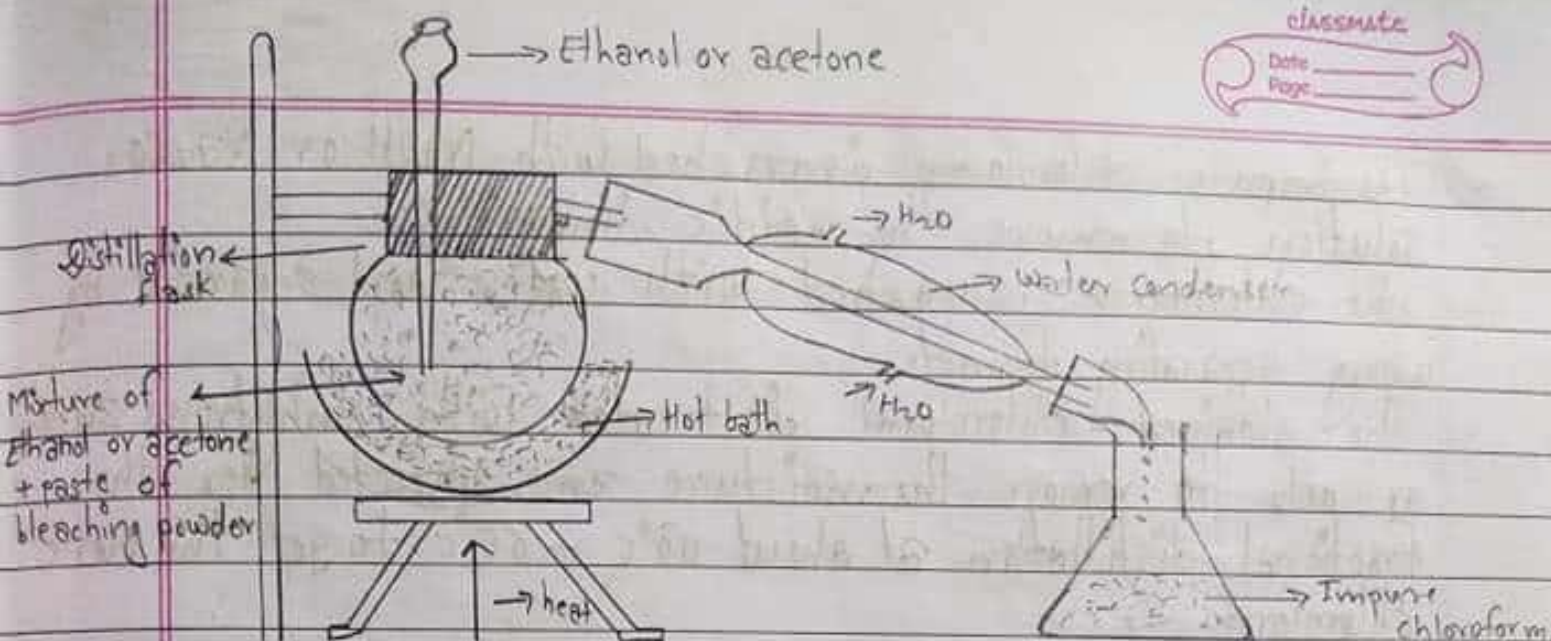 classmate
Date
Page
Ethanol or acetone
H₂O
Distillation
flask
Water condenser
Mixture of
Ethanol or acetone
+ paste of
bleaching powder
Hot bath
H₂O
heat
Impure
chloroform